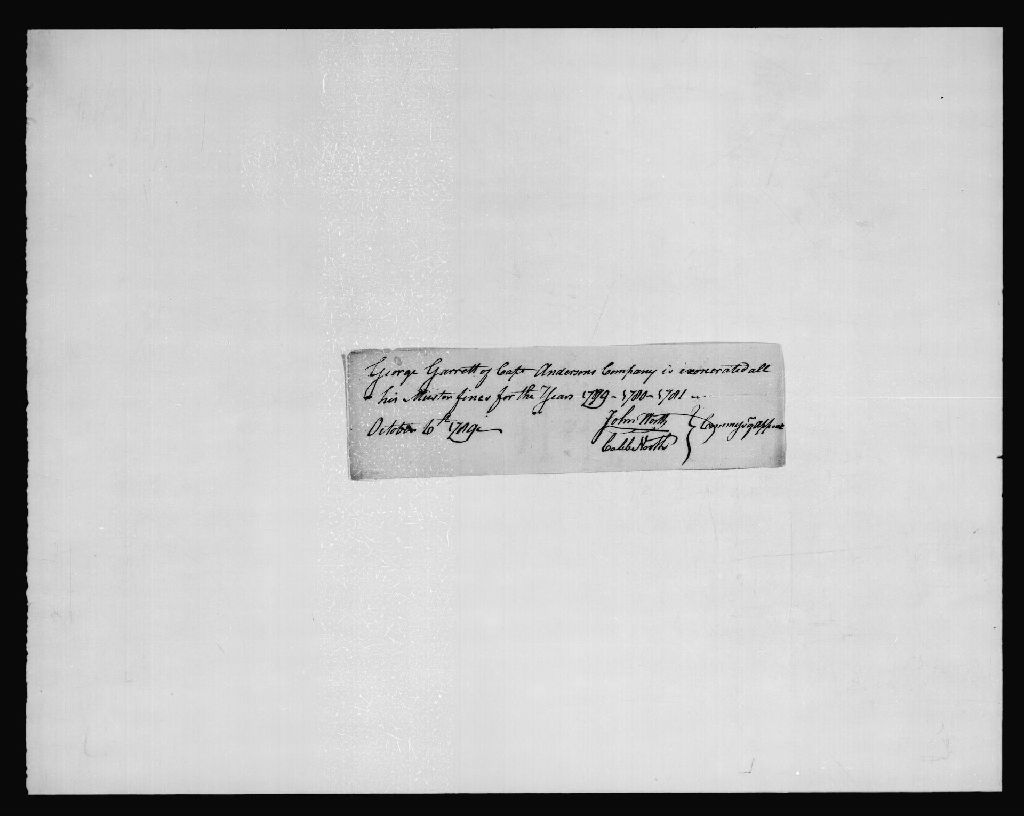 George Garrett of Capt Andersons Company is exonerated all
his Muster fines for the Years 1779 - 1780 - 1781
October 6th 1789
John North
Caleb North